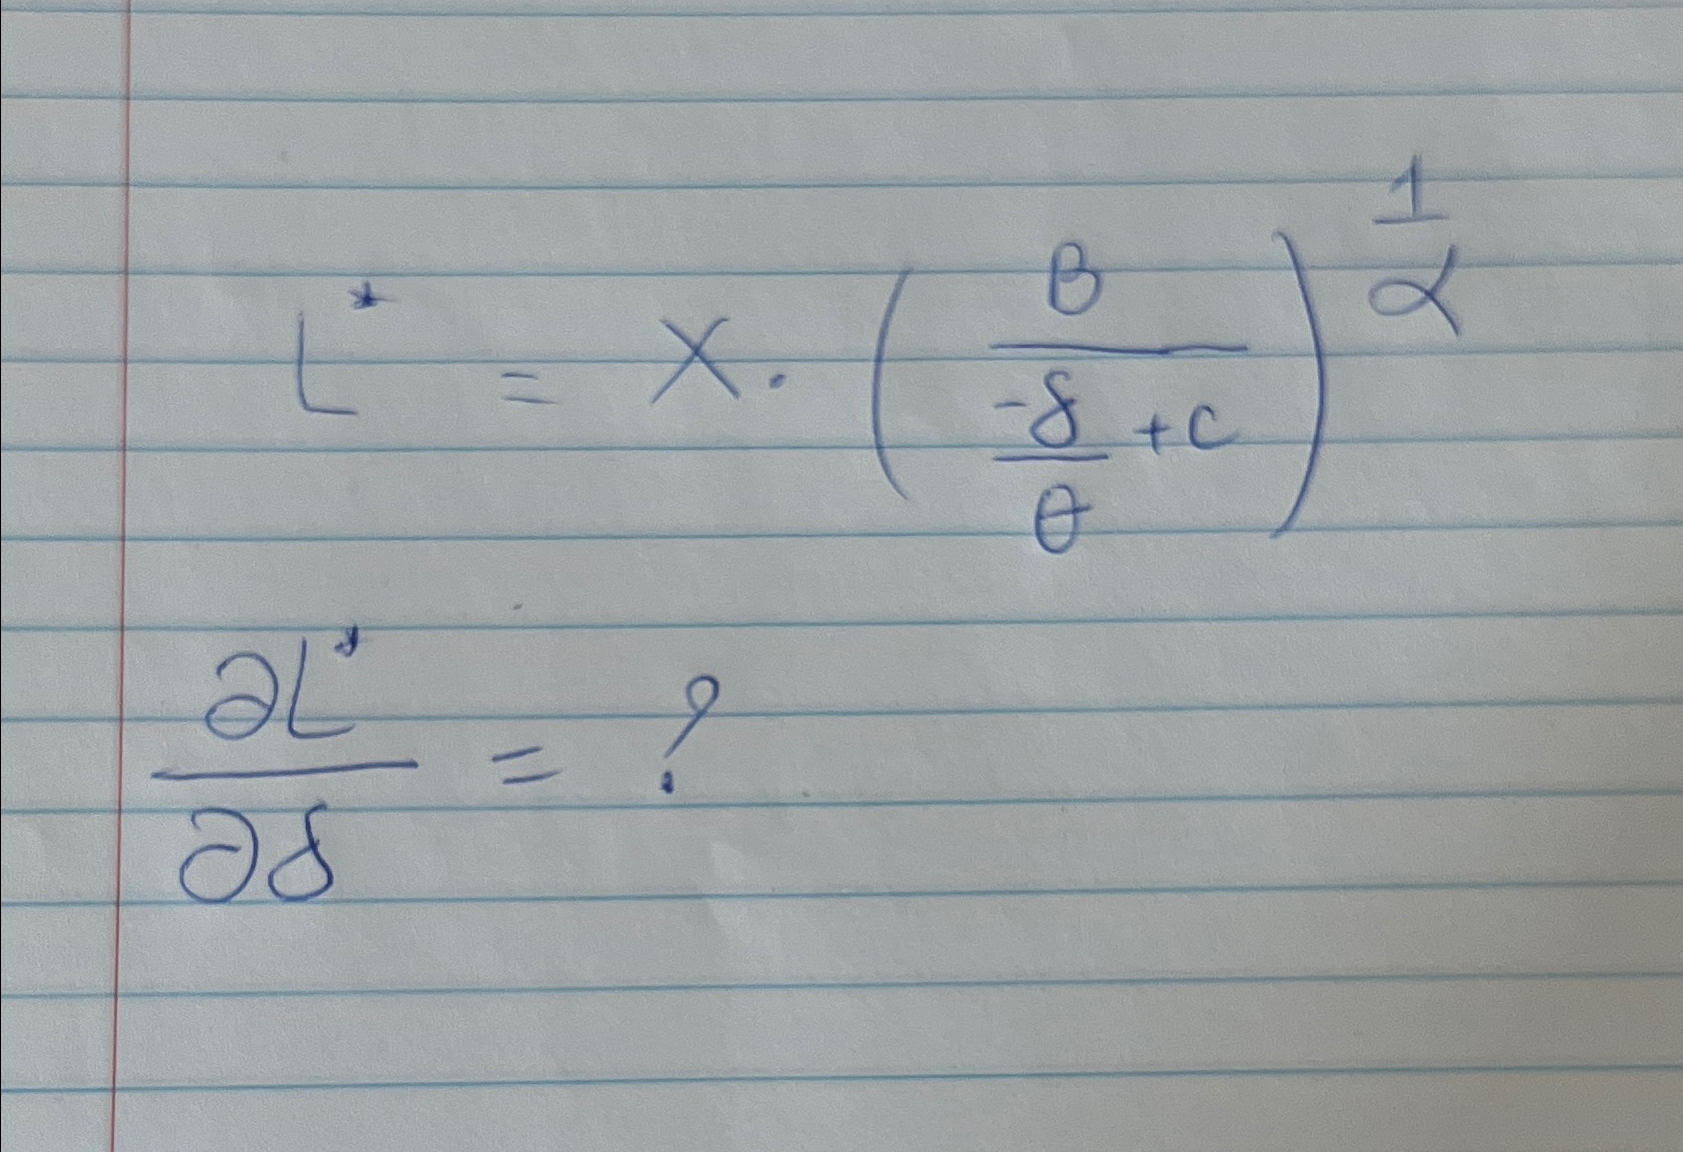 L* = X · (B / (-δ/θ + c))^(1/α)
∂L*/∂δ = ?